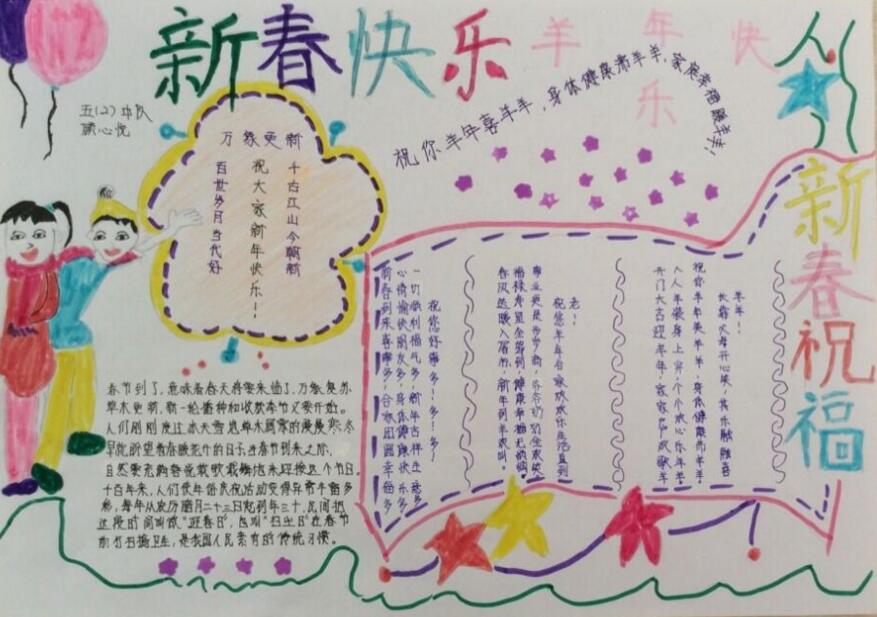 新春快乐
羊年快乐
五(2)中队
祝你羊年喜羊羊，身体健康沸羊羊，家庭幸福暖羊羊！
万象更新
千古江山今朝新
祝大家新年快乐！
百世岁月当代好
新春祝福
羊年！
长辈父母开心笑，其乐融融喜
祝你羊年美羊羊，身体健康沸羊羊
人人羊装身上穿，个个放心乐年羊
开门大吉迎羊年，家家
老！
祝您羊年合家欢欢乐生活直到
事业更是步步高，爷爷奶奶全家
福禄寿星全都到，健康幸福
春风送暖入宿所，新年到羊欢叫。
祝您好事多！多！多！
一切顺利福气多，新年吉祥生意多
心情愉快朋友多，身体健康快乐多
新春到来喜事多，合家团圆幸福多
春节到了，意味着春天将要来临了，万象复苏
草木更新，新一轮播种和收获季节又要开始。
人们刚刚度过冰天雪地草木凋零的漫漫寒冬
早就盼望着春暖花开的日子，当春节到来之际，
自然要充满喜悦载歌载舞地来迎接这个节日。
千百年来，人们使年俗庆祝活动变得异常丰富多
彩，每年从农历腊月二十三日起到年三十，民间把
这段时间叫做"迎春日"，也叫"扫尘日"在春节
前打扫卫生，是我国人民素有的传统习惯。